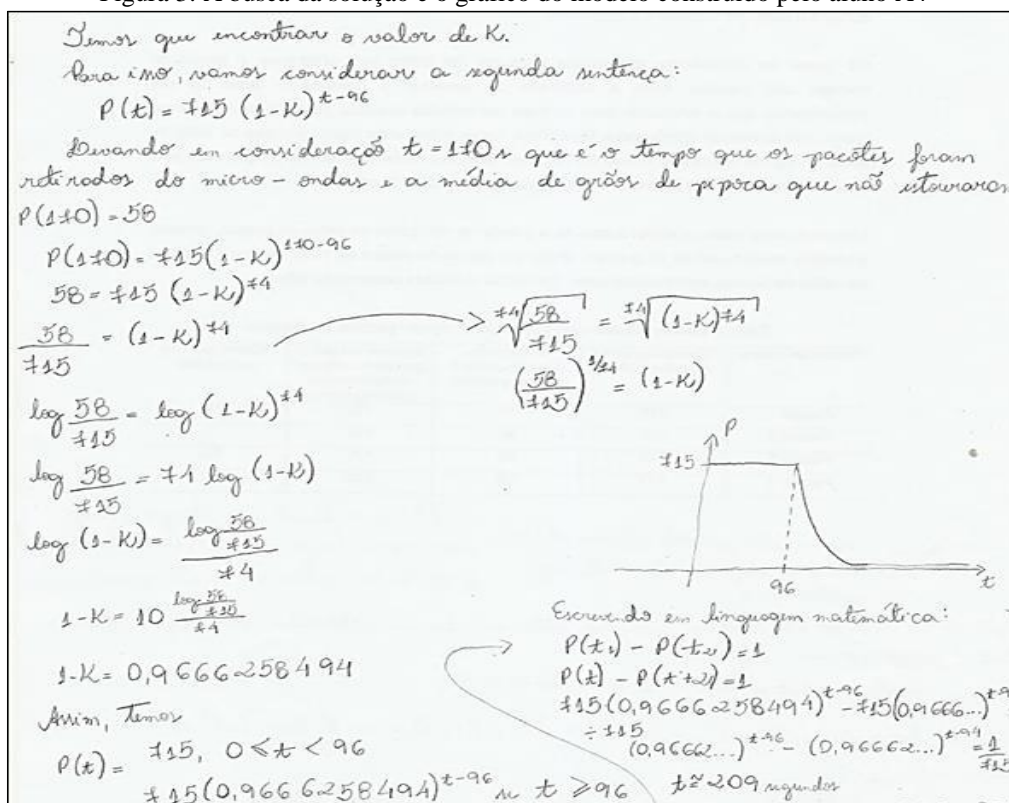 Figura 3: A busca da solução e o gráfico do modelo construído pelo aluno A7.
Temos que encontrar o valor de K.
Para isso, vamos considerar a segunda sentença:
P(t) = 715 (1-K)^{t-96}
Levando em consideração t = 170 s que é o tempo que os pacotes foram
retirados do micro-ondas e a média de grãos de pipoca que não estouraram
P(170) = 58
P(170) = 715(1-K)^{170-96}
58 = 715 (1-K)^{74}
58/715 = (1-K)^{74}
log 58/715 = log (1-K)^{74}
log 58/715 = 74 log (1-K)
log (1-K) = (log 58/715)/74
1-K = 10^{(log 58/715)/74}
1-K = 0,9666258494
Assim, temos
P(t) = 715, 0 ≤ t < 96
715(0,9666258494)^{t-96} se t ≥ 96
\sqrt[74]{58/715} = \sqrt[74]{(1-K)^{74}}
(58/715)^{1/74} = (1-K)
P
715
96
t
Escrevendo em linguagem matemática:
P(t₁) - P(t₂) = 1
P(t) - P(t+2) = 1
715(0,9666258494)^{t-96} - 715(0,9666...)^{t-9
÷ 715
(0,96662...)^{t-96} - (0,96662...)^{t-94} = 1/715
t ≅ 209 segundos